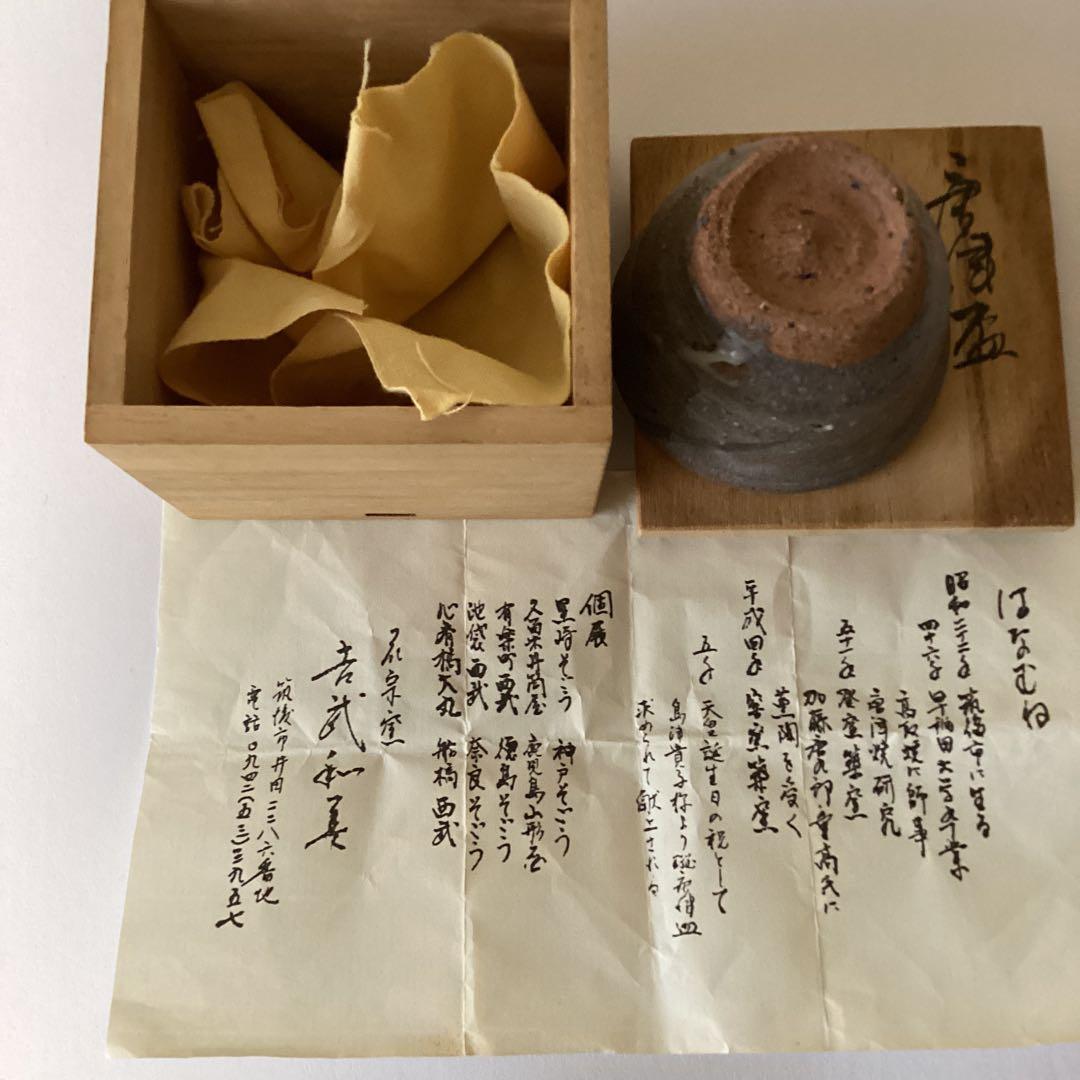 唐津盃
はなむね
昭和二十二年 筑後市に生る
四十六年 早稲田大学卒業
高取焼に師事
唐津焼研究
五十一年 登窯築窯
加藤唐九郎 重高氏に
薫陶を受く
平成四年 窖窯築窯
五年 天皇誕生日の祝として
島津貴子様より
求められて献上される
個展
黒崎そごう 神戸そごう
久留米井筒屋 鹿児島山形屋
有楽町西武 徳島そごう
池袋西武 奈良そごう
心斎橋大丸 船橋西武
花宗窯
吉武和美
筑後市井田二二八六番地
電話〇九四二(五三)三九五七